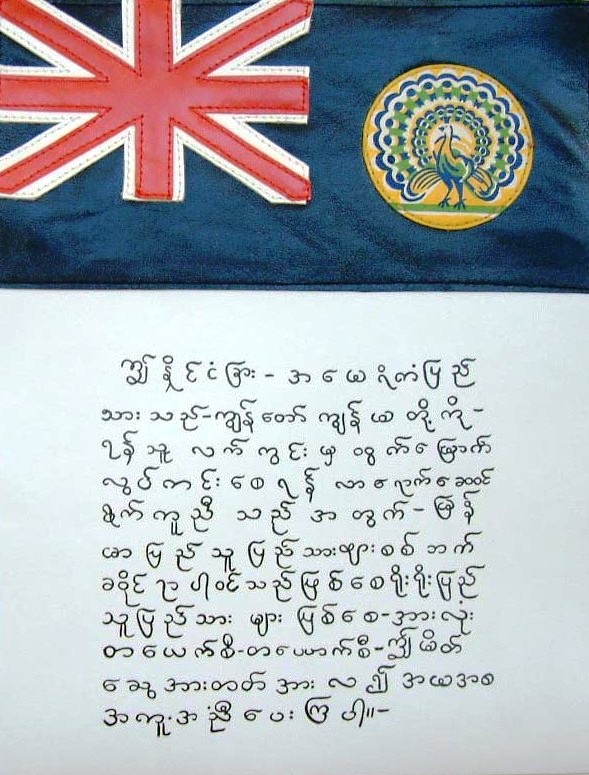 ဤနိုင်ငံခြား-အမေရိကံပြည်
သားသည်-ကျွန်တော်ကျွန်မတို့ကို-
ရန်သူလက်တွင်းမှထွက်မြောက်
လွတ်ကင်းစေရန်လာရောက်ဆောင်
ရွက်ကူညီသည်အတွက်-မြန်
မာပြည်သူပြည်သားများစစ်ဘက်
ခရိုင်ညပါဝင်သည်ဖြစ်စေရိုးရိုးပြည်
သူပြည်သားများဖြစ်စေ-အားလုံး
တယောက်စီ-တယောက်စီ-ဤမိတ်
ဆွေအားတတ်အားလ၍အမအစ
အကူ-အညီပေးကြပါ။-